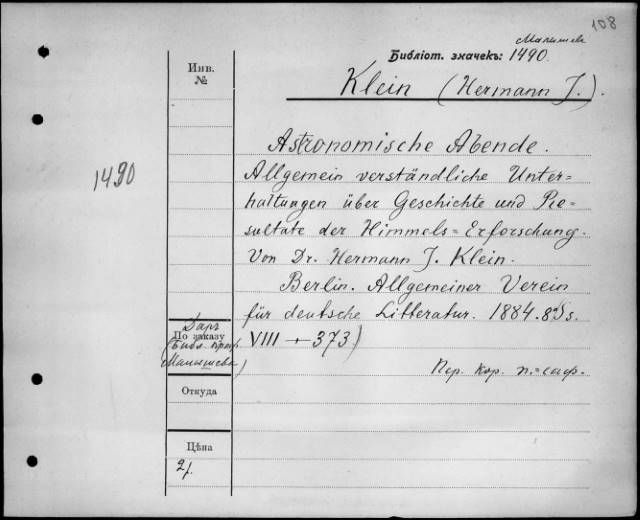 108
Малышев
Библіот. значекъ: 1490.
Инв.
№
Klein (Hermann J.).
1490
Astronomische Abende.
Allgemein verständliche Unter=
haltungen über Geschichte und Re=
sultate der Himmels=Erforschung.
Von Dr. Hermann J. Klein.
Berlin. Allgemeiner Verein
für deutsche Litteratur. 1884. 8º
VIII + 373)
Даръ
По заказу
(Библ.
Малышева)
Пер. Кор. п.=саф.
Откуда
Цѣна
2р.